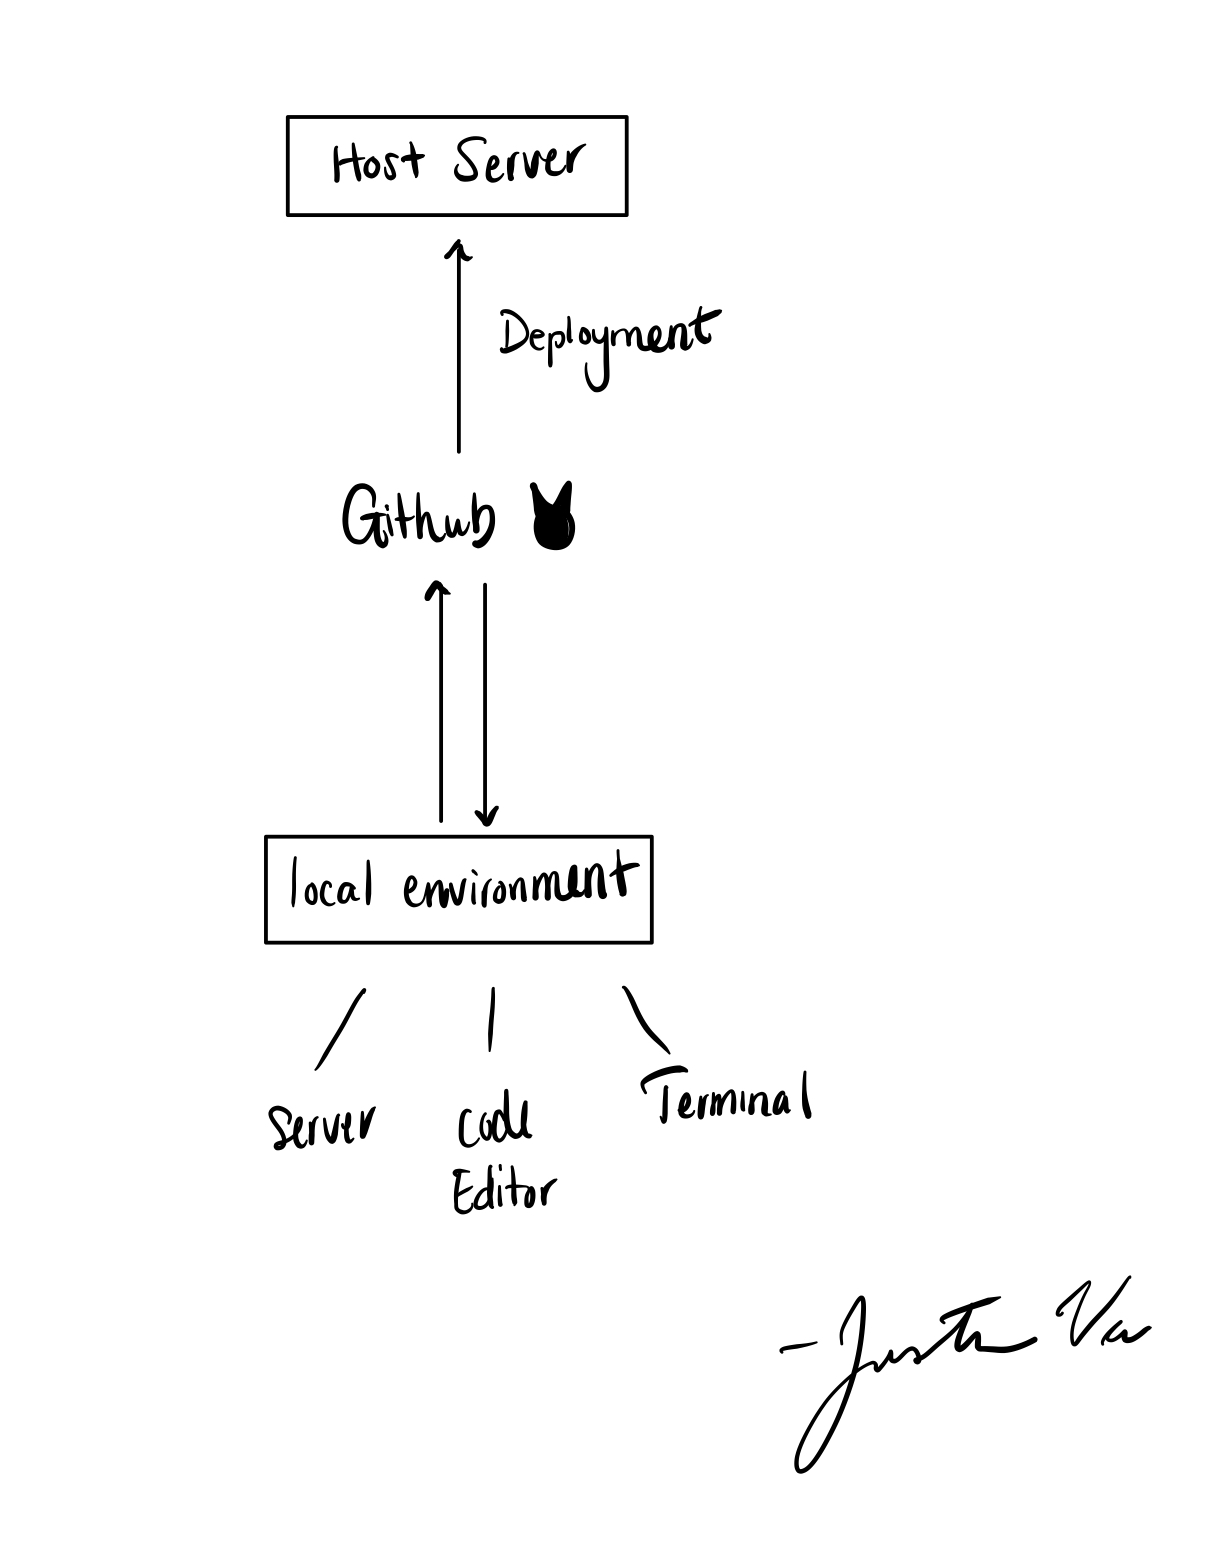 Host Server
Deployment
Github
local environment
Server
Code
Editor
Terminal
- Justin